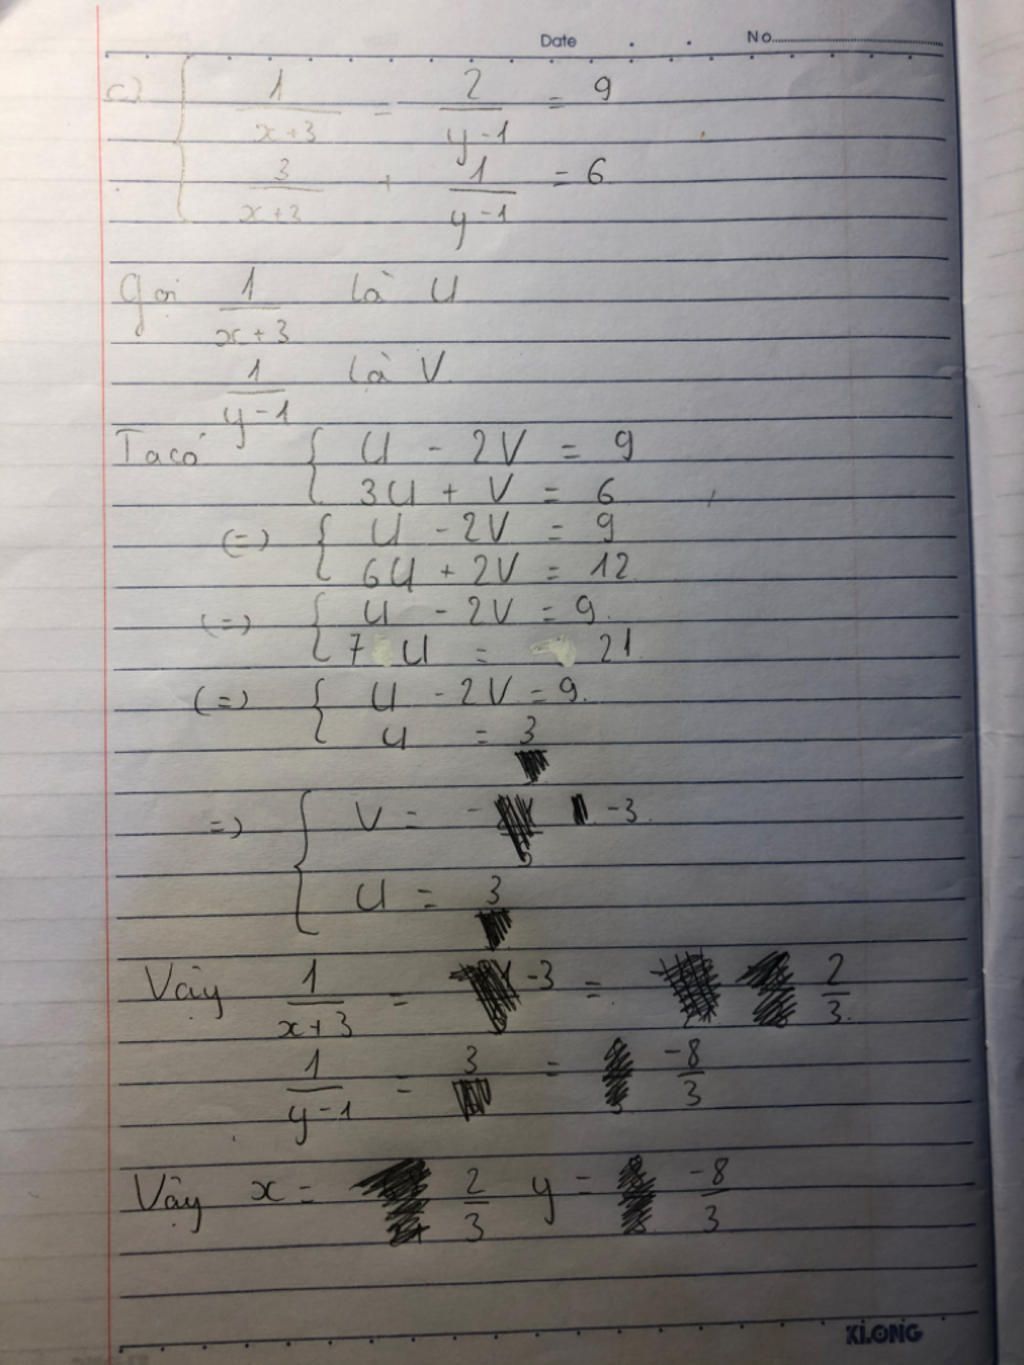 Date No
c) { 1/(x+3) - 2/(y-1) = 9
3/(x+3) + 1/(y-1) = 6
Gọi 1/(x+3) là U
1/(y-1) là V
Ta có { U - 2V = 9
3U + V = 6
(=) { U - 2V = 9
6U + 2V = 12
(=) { U - 2V = 9.
7 U = 21
(=) { U - 2V = 9.
U = 3
=) { V = -3
U = 3
Vậy 1/(x+3) = -3 = 2/3.
1/(y-1) = 3 = -8/3
Vậy x = 2/3 y = -8/3
KLONG